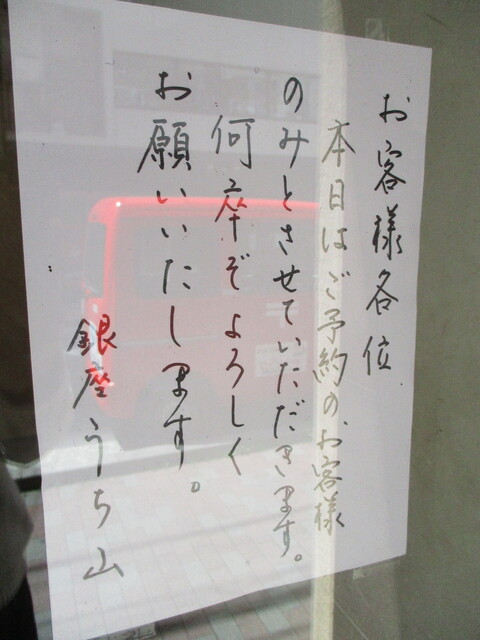 お客様各位
本日はご予約のお客様
のみとさせていただきます。
何卒ぞよろしく
お願いいたします。
銀座うち山